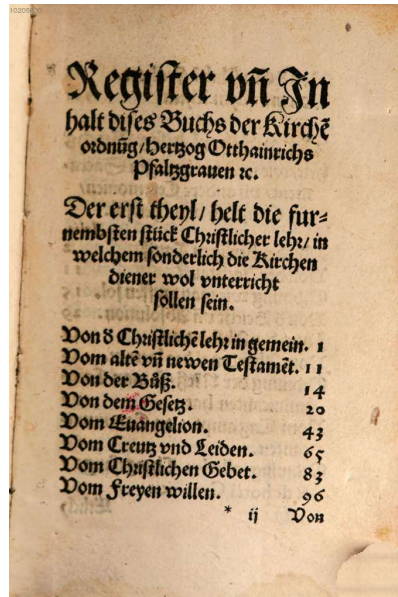 Register vn̄ In
halt dises Buchs der Kirchē
ordnūg/Hertzog Otthainrichs
Pfaltzgrauen ꝛc.
Der erst theyl/ helt die fur⸗
nembsten stück Christlicher lehr/ in
welchem sonderlich die Kirchen
diener wol vnterricht
sollen sein.
Von d̄ Christlichē lehr in gemein. 1
Vom altē vn̄ newen Testamēt. 11
Von der Bůß. 14
Von dem Gesetz. 20
Vom Euangelion. 43
Vom Creutz vnd Leiden. 65
Vom Christlichen Gebet. 83
Vom Freyen willen. 96
* ij Von